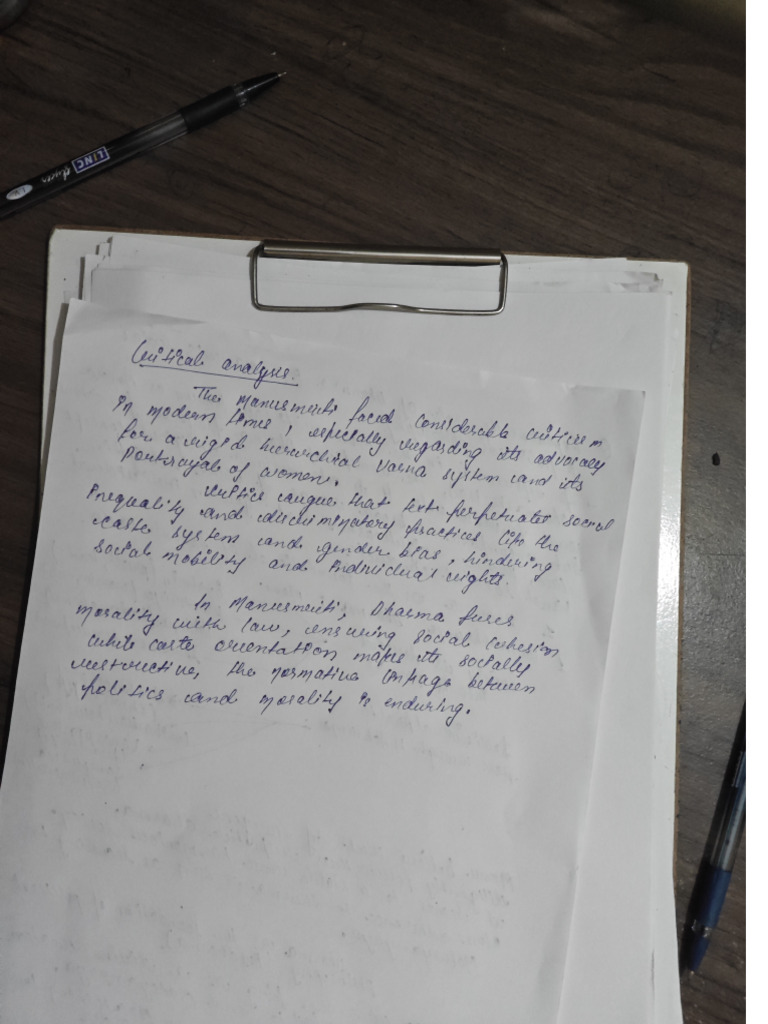 LINC
Critical analysis.
The Manusmriti faced considerable criticism
in modern times, especially regarding its advocacy
for a rigid hierarchical varna system and its
portrayals of women.
Critics argue that text perpetuates social
inequality and discriminatory practices like the
caste system and gender bias, hindering
social mobility and individual rights.
In Manusmriti, Dharma fuses
morality with law, ensuring social cohesion
while caste orientation makes its socially
restrictive, the normative linkage between
politics and morality is enduring.